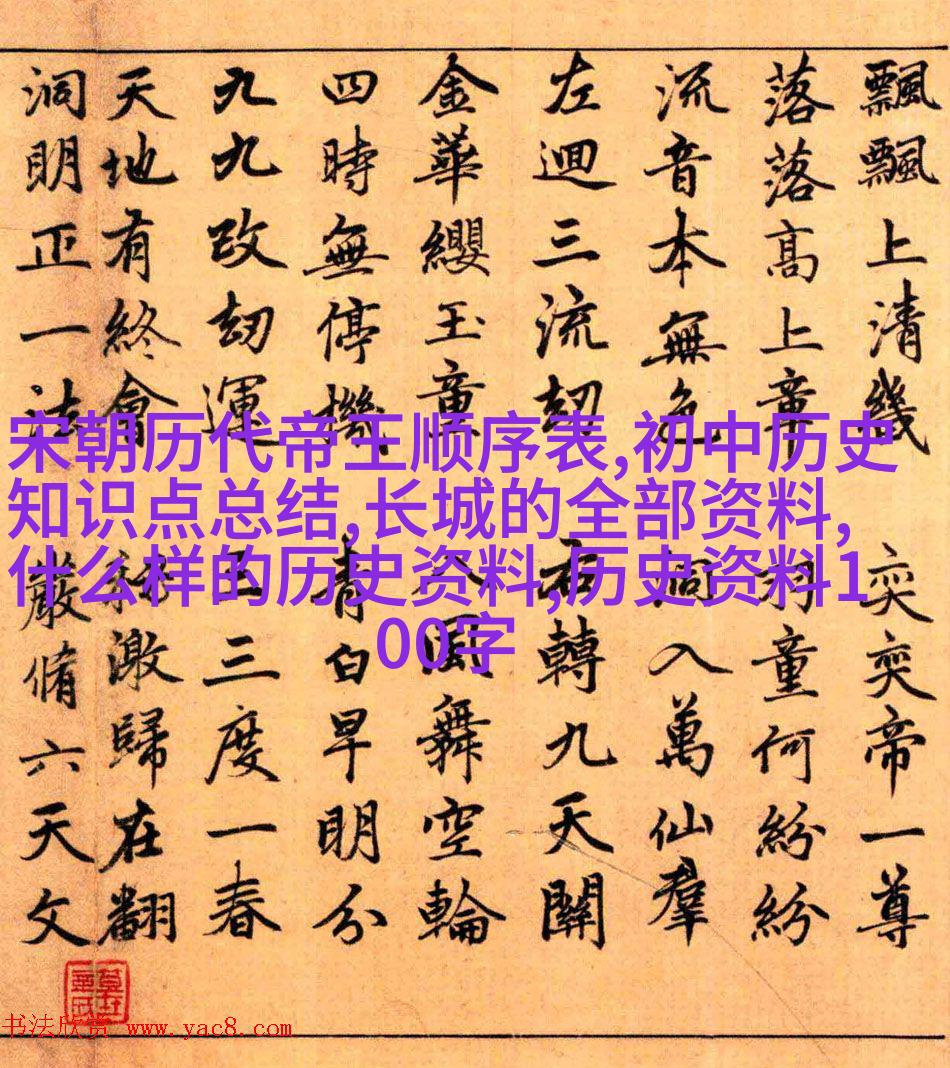 飄飄上清幾 奕奕帝一尊
落落高上章 羽童何紛紛
流音本無色 入萬仙羣
左迴三流劫 右轉九天關
金華纓玉童 八風舞空輪
四時無停機 青白早明分
九九改劫運 三度一春
天地有終會 激歸在翻
洞明正一法 嚴脩六天文
宋朝历代帝王顺序表,初中历史
知识点总结,长城的全部资料,
什么样的历史资料,历史资料1
00字
书法欣赏 www.yac8.com